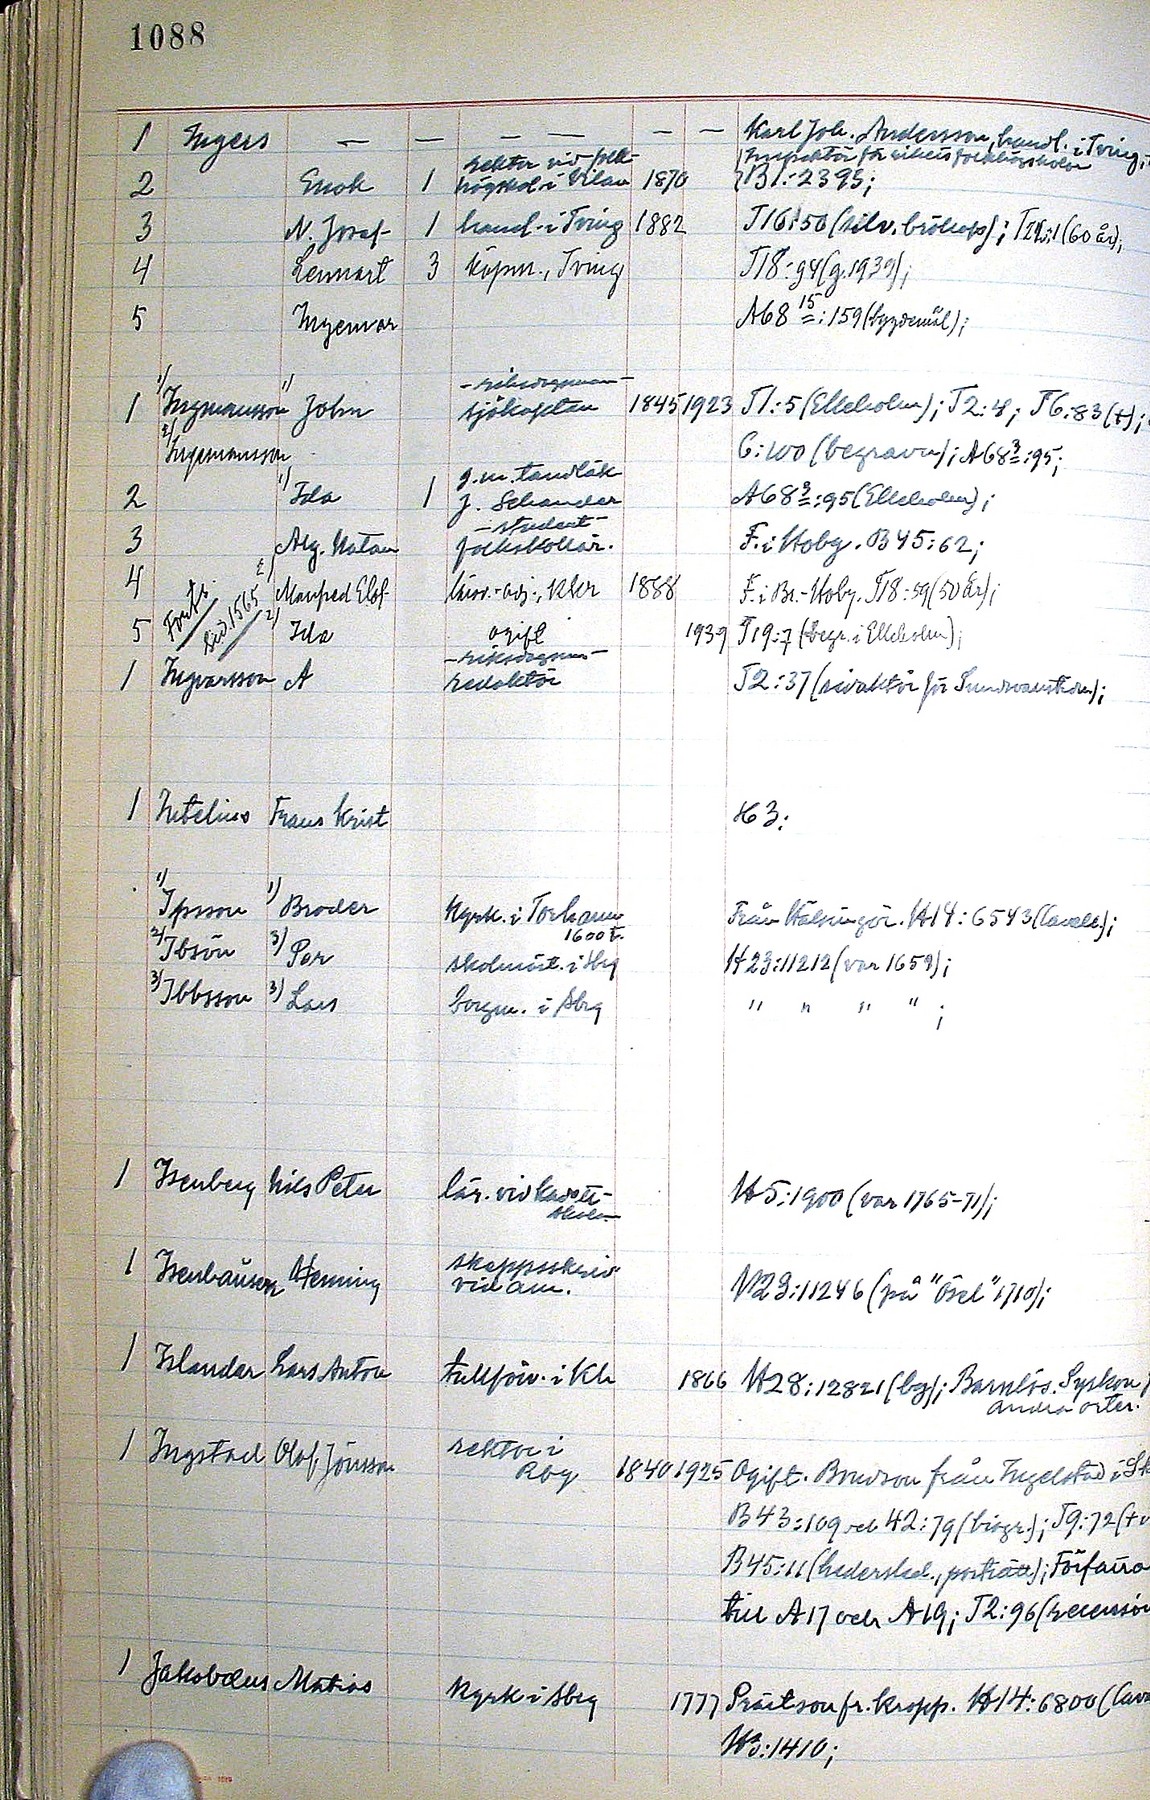 1088
1 Ingers — — — — — — Karl Joh. Andersson, handl. i Tving,
rektor vid folk- Inspektör för rikets folkhögskolor
2 Enok 1 högskol. i Vilan 1870 B1:2395;
3 N. Josef 1 handl. i Tving 1882 T16:50 (silv. bröllop); T24:1 (60 år);
4 Lennart 3 köpm., Tving T18:94 (g. 1939);
5 Ingemar A68 15:159 (bygdemål);
— riksdagsman —
1 1) Ingmansson 1) John sjökapten 1845 1923 T1:5 (Elleholm); T2:4; T6:83 (+);
2) Ingemansson 6:100 (begravn); A68 3:95;
g.m. tandläk
2 1) Ida 1 J. Schander A68 3:95 (Elleholm);
— student —
3 Alg. Natan folkskollär. F. i Hoby. B45:62;
4 2) Manfred Elof lärov.-adj., Khr 1888 F. i Br.-Hoby. T18:59 (50 år);
Forts. sid. 1565
5 2) Ida ogift 1939 T19:7 (begr. i Elleholm);
— riksdagsm —
1 Ingvarsson A redaktör T2:37 (redaktör för Sundsvallstidn);
1 Intelius Frans Krist H3:
1) Ipsson 1) Broder Kyrk. i Torhamn Från Hälsingör. H14:6543 (Cavall.);
1600 t.
2) Ibsön 3) Per skolmäst. i Sbg H23:11212 (var 1659);
3) Ibbsson 3) Lars borgm. i Sbg " " " " ;
1 Isenberg Nils Peter lär. vid kadett- H5:1900 (var 1765-71);
skolan
1 Isenhausen Henning skeppsskriv
vid am. H23:11246 (på "Ösel" 1710);
1 Islandar Lars Anton tullförv. i Kh 1866 H28:12821 (bg); Barnlös. Syskon
andra orter.
1 Ingstad Olof Jönsson rektor i
Rby 1840 1925 Ogift. Bondson från Ingelstad i Sk
B43:109 och 42:79 (biogr.); T9:72 (+
B45:11 (hedersled., porträtt); Förfat
till A17 och A19; T2:96 (recension
1 Jakobæus Matias Kyrk i Sbg 1777 Prästson fr. Kropp. H14:6800 (Cava
H3:1410;